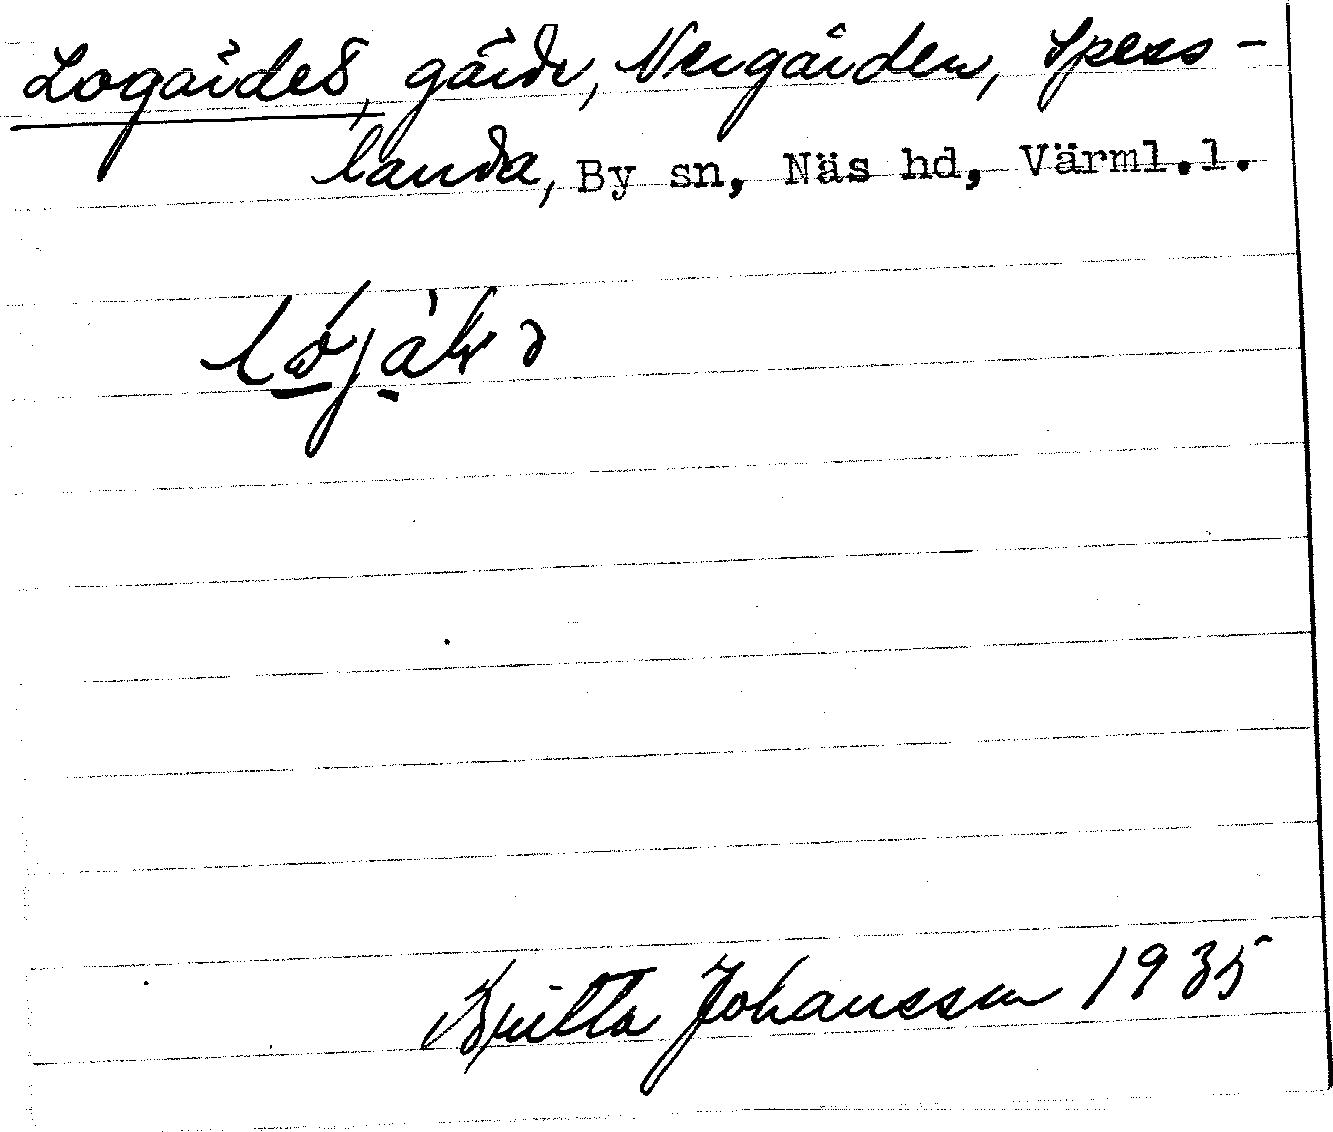 Logårdet, gård, Nergården, Spess-
landa, By sn, Näs hd, Värml.l.
Britta Johansson 1935